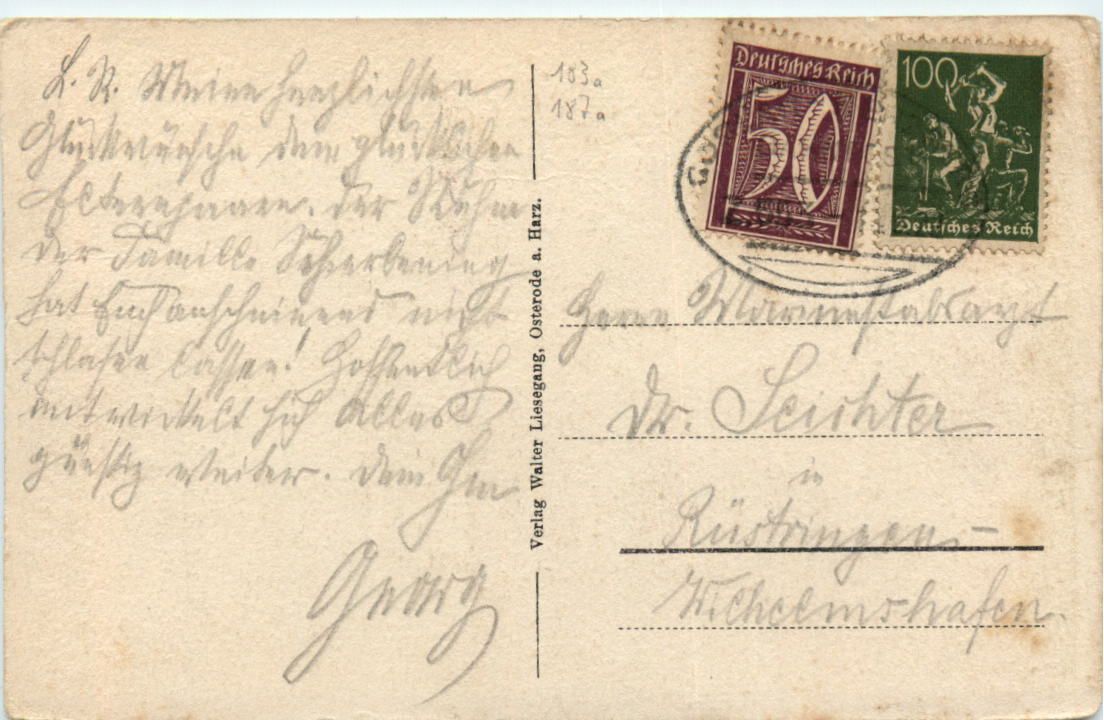 L. R. Meine herzlichsten
Glückwünsche dem glücklichen
Elternpaare. Der Ruhm
der Familie Scherbening
hat Euch anscheinend nicht
schlafen lassen! Hoffentlich
entwickelt sich Alles
günstig weiter. Dein
Georg
183a
187a
Verlag Walter Liesegang, Osterode a. Harz.
Deutsches Reich
50
100
Deutsches Reich
Herrn Marinestabsarzt
Dr. Leichter
in
Rüstringen-
Wilhelmshafen